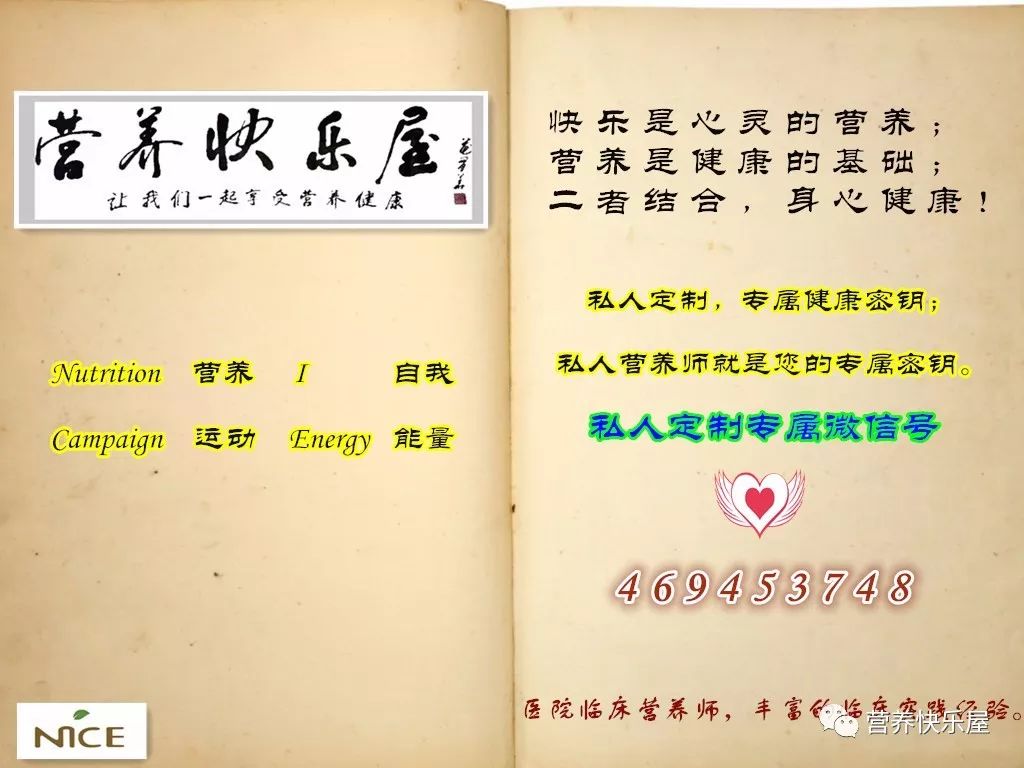 营养快乐屋
让我们一起享受营养健康
Nutrition 营养 I 自我
Campaign 运动 Energy 能量
NICE
快乐是心灵的营养；
营养是健康的基础；
二者结合，身心健康！
私人定制，专属健康密钥；
私人营养师就是您的专属密钥。
私人定制专属微信号
469453748
医院临床营养师，丰富的临床实践经验。
营养快乐屋